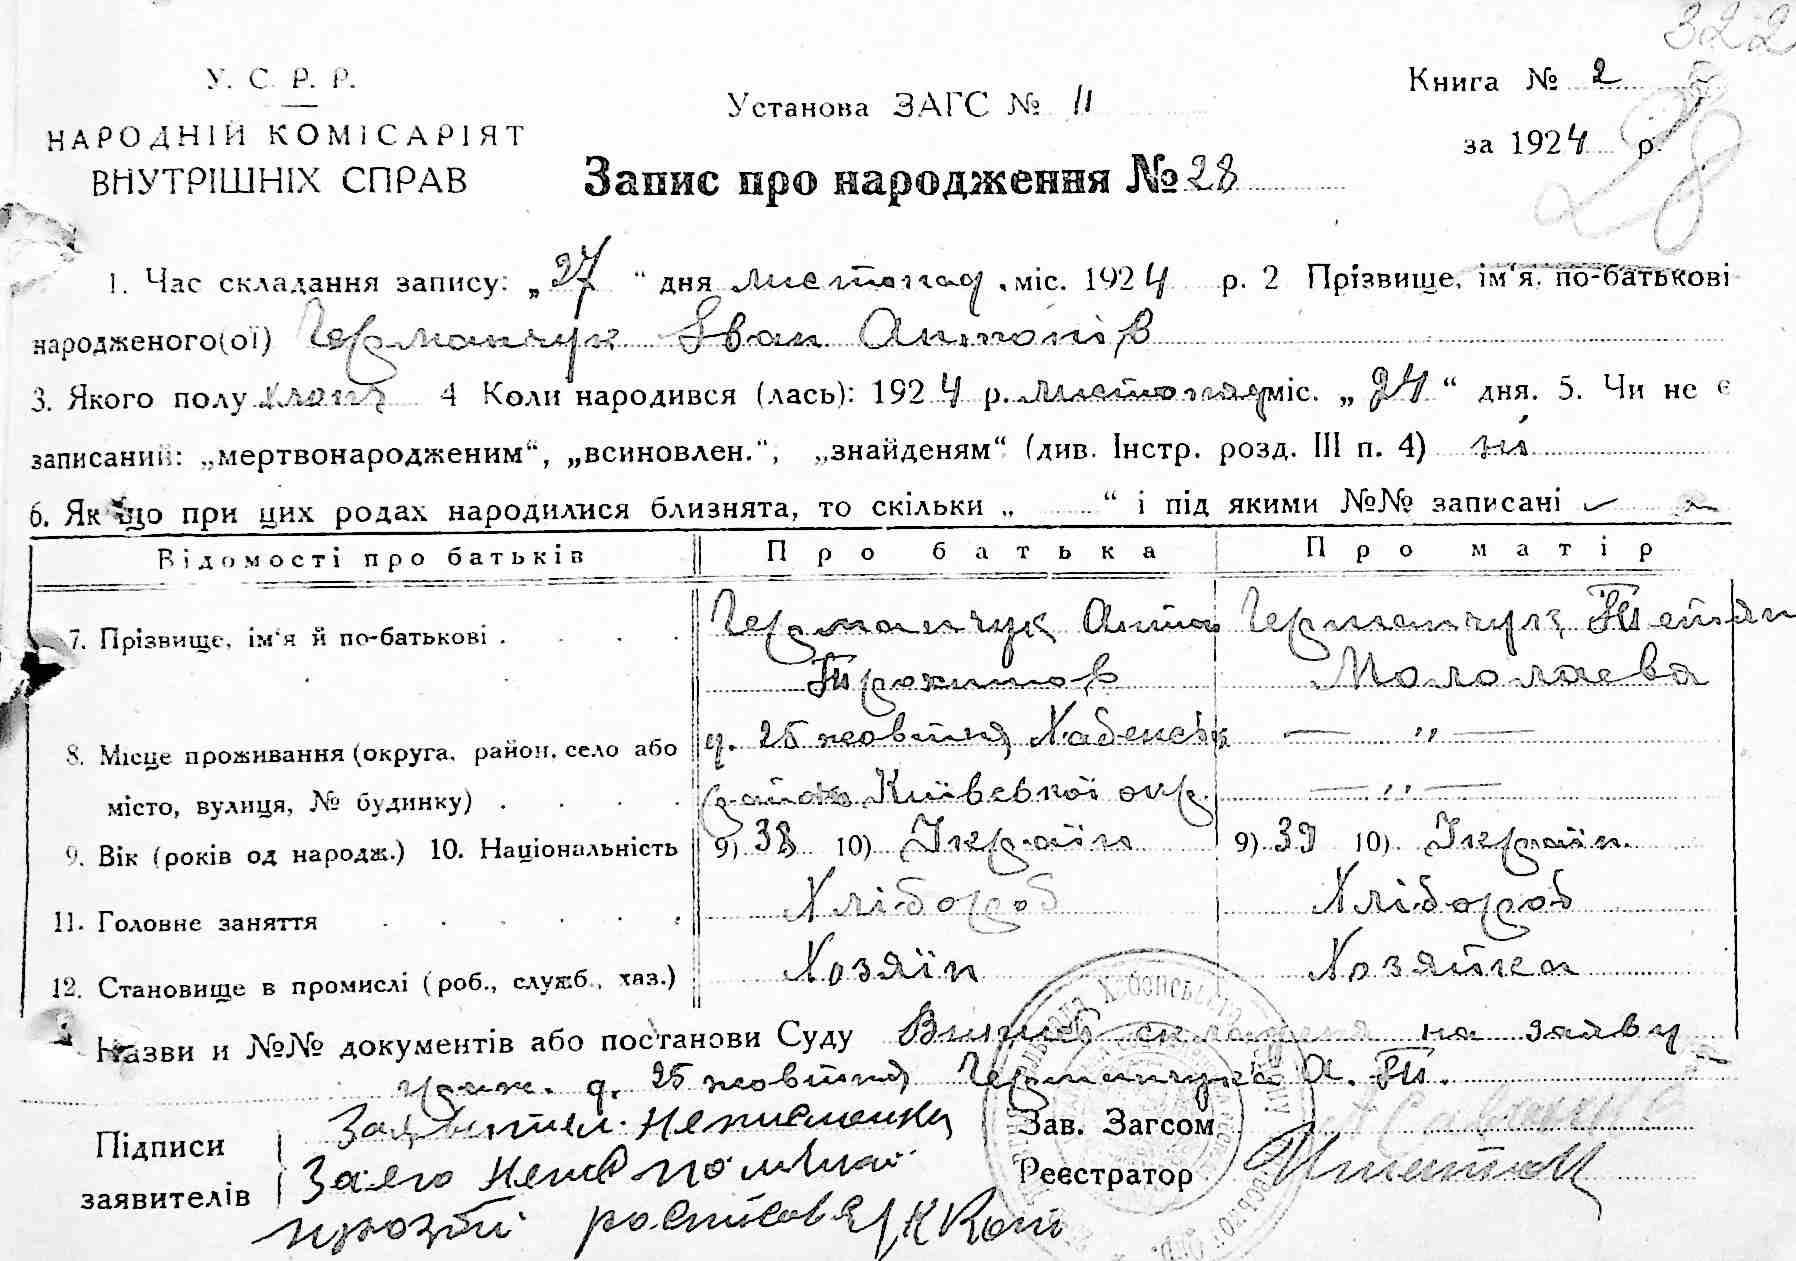 322
У. С. Р. Р.
НАРОДНІЙ КОМІСАРІЯТ
ВНУТРІШНІХ СПРАВ
Установа ЗАГС № 11
Книга № 2
за 1924 р.
28
Запис про народження № 28
1. Час складання запису: „27“ дня листопад. міс. 1924 р. 2 Прізвище, ім'я, по-батькові
народженого(ої) Германчук Іван Антонів
3. Якого полу хлопц 4 Коли народився (лась): 1924 р. листопад міс. „24“ дня. 5. Чи не є
записаний: „мертвонародженим“, „всиновлен.“, „знайденям“ (див. Інстр. розд. III п. 4) ні
6. Як що при цих родах народилися близнята, то скільки „ “ і під якими №№ записані
Відомості про батьків Про батька Про матір
7. Прізвище, ім'я й по-батькові Германчук Антон Германчук Тетян
Трохимов
8. Місце проживання (округа, район, село або д. 25 жовтня Хабенськ — „ —
місто, вулиця, № будинку) району Київської окр. — „ —
9. Вік (років од народж.) 10. Національність 9) 38 10) Україн 9) 39 10) Україн.
11. Головне заняття Хлібороб Хлібороб
12. Становище в промислі (роб., служб., хаз.) Хозяїн Хозяйка
Назви и №№ документів або постанови Суду складеня на заяву
граж. д. 25 жовтня Германчука А. Т.
Підписи
заявителів
Заявител неписменны
За его
прозбі росписовся
Зав. Загсом
Реєстратор